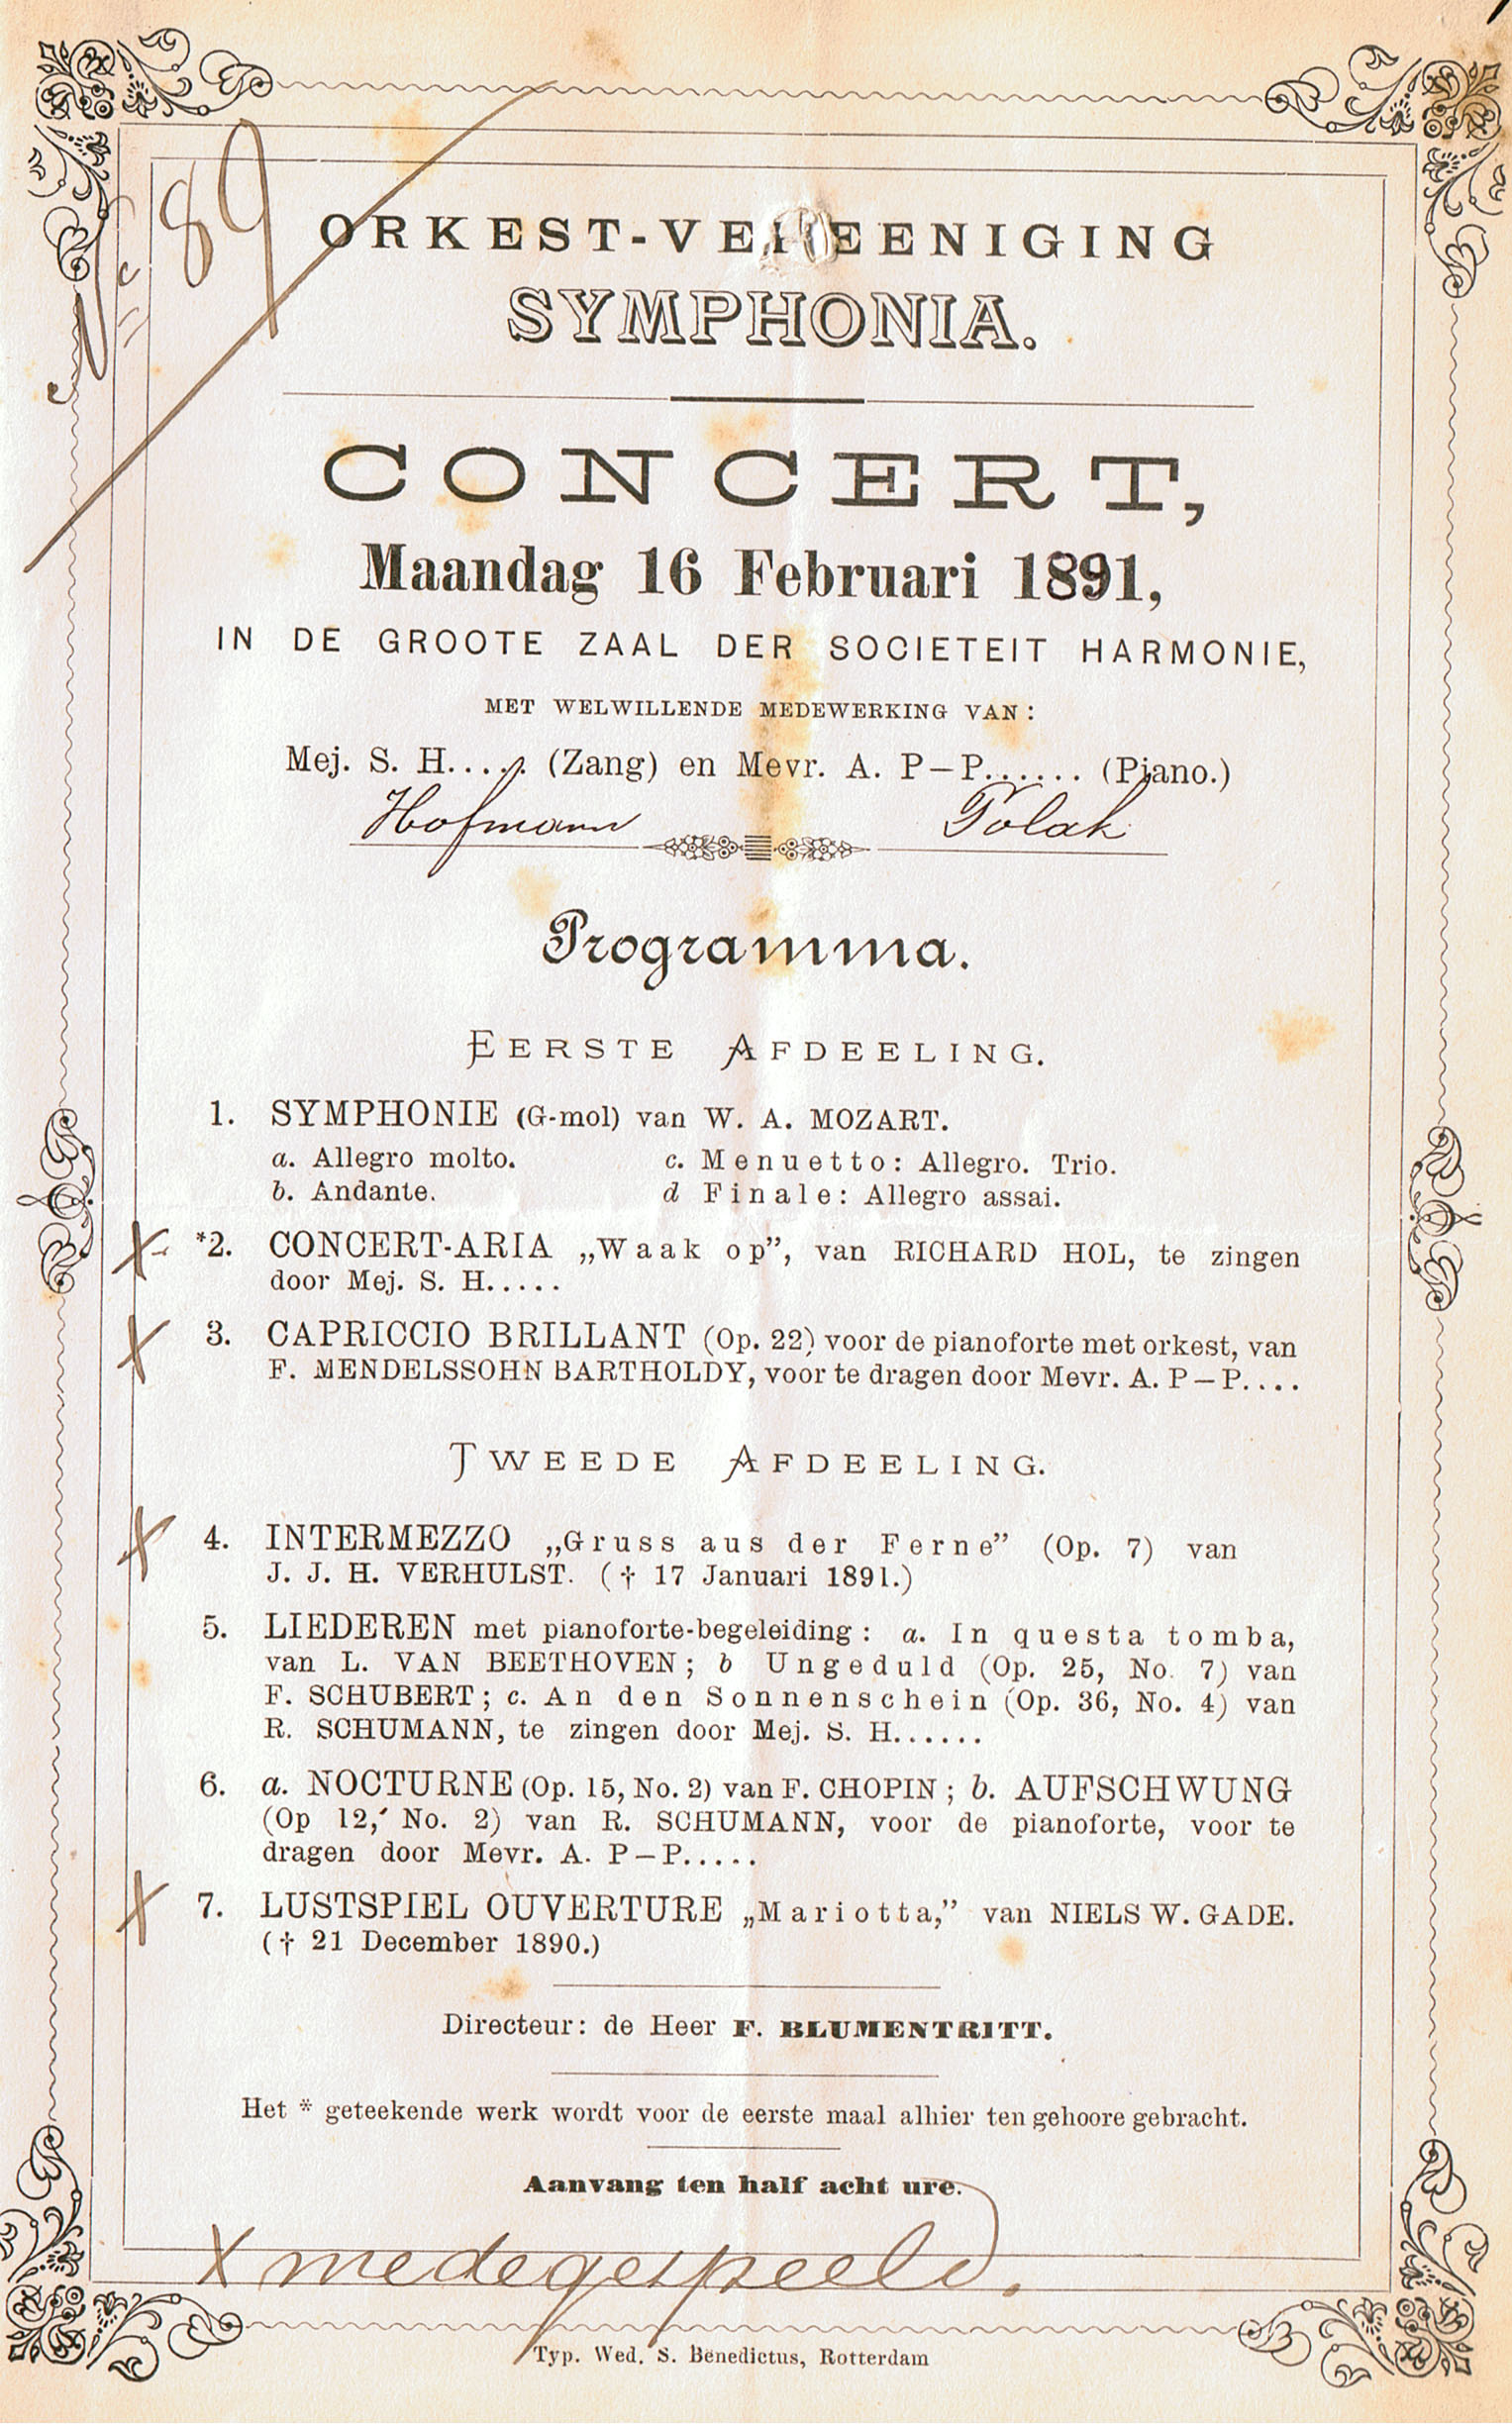 No 89
ORKEST-VEREENIGING
SYMPHONIA.
CONCERT,
Maandag 16 Februari 1891,
IN DE GROOTE ZAAL DER SOCIETEIT HARMONIE,
MET WELWILLENDE MEDEWERKING VAN:
Mej. S. H..... (Zang) en Mevr. A. P—P...... (Piano.)
Hofmann Polak
Programma.
EERSTE AFDEELING.
1. SYMPHONIE (G-mol) van W. A. MOZART.
a. Allegro molto. c. Menuetto: Allegro. Trio.
b. Andante. d Finale: Allegro assai.
X *2. CONCERT-ARIA „Waak op”, van RICHARD HOL, te zingen
door Mej. S. H.....
X 3. CAPRICCIO BRILLANT (Op. 22) voor de pianoforte met orkest, van
F. MENDELSSOHN BARTHOLDY, voor te dragen door Mevr. A. P—P....
TWEEDE AFDEELING.
X 4. INTERMEZZO „Gruss aus der Ferne” (Op. 7) van
J. J. H. VERHULST. († 17 Januari 1891.)
5. LIEDEREN met pianoforte-begeleiding: a. In questa tomba,
van L. VAN BEETHOVEN; b Ungeduld (Op. 25, No. 7) van
F. SCHUBERT; c. An den Sonnenschein (Op. 36, No. 4) van
R. SCHUMANN, te zingen door Mej. S. H......
6. a. NOCTURNE (Op. 15, No. 2) van F. CHOPIN; b. AUFSCHWUNG
(Op 12, No. 2) van R. SCHUMANN, voor de pianoforte, voor te
dragen door Mevr. A. P—P.....
X 7. LUSTSPIEL OUVERTURE „Mariotta,” van NIELS W. GADE.
(† 21 December 1890.)
Directeur: de Heer F. BLUMENTRITT.
Het * geteekende werk wordt voor de eerste maal alhier ten gehoore gebracht.
Aanvang ten half acht ure.
X medegespeeld.
Typ. Wed. S. Benedictus, Rotterdam